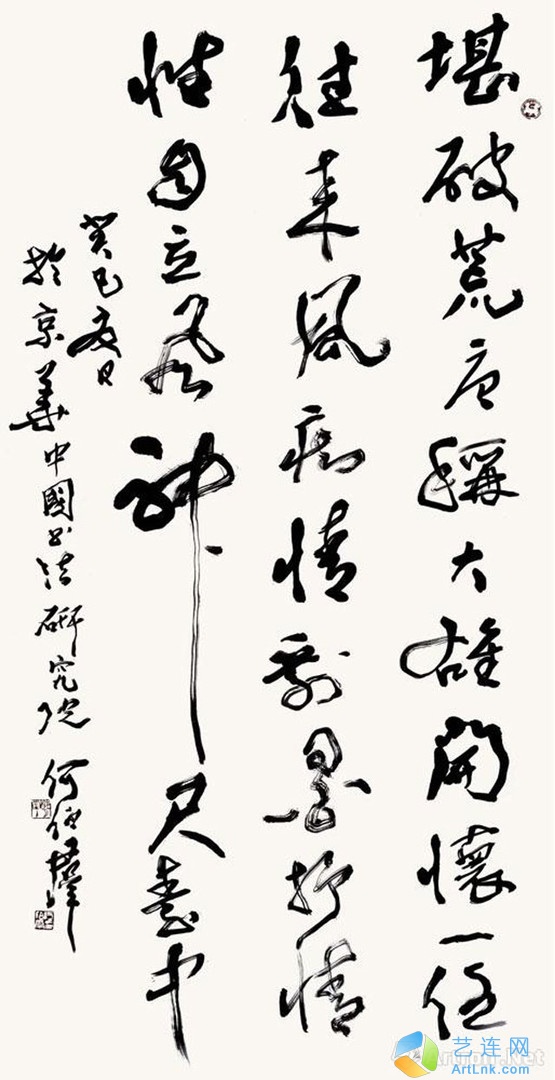 堪破荒唐稱大雄開懷一任
往來風痴情墨抒情
性自立風神尺中
癸巳夏日
於京華中國書法研究院何
艺连网
ArtLnk.com